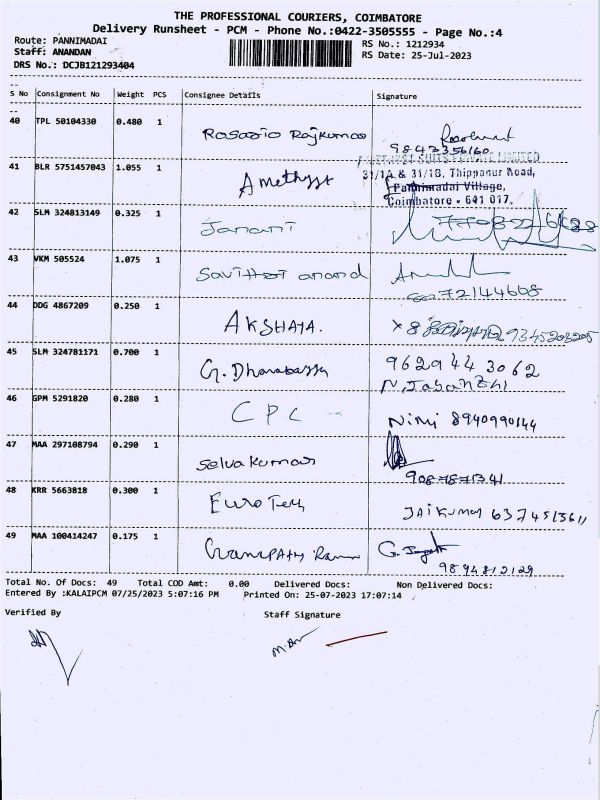 THE PROFESSIONAL COURIERS, COIMBATORE
Delivery Runsheet - PCM - Phone No.:0422-3505555 - Page No.:4
Route: PANNIMADAI RS No.: 1212934
Staff: ANANDAN RS Date: 25-Jul-2023
DRS No.: DCJB121293404
S No Consignment No Weight PCS Consignee Details Signature
40 TPL 50104330 0.480 1 Rosario Rajkumar
9842356160
41 BLR 5751457043 1.055 1 Amethyst
31/1A & 31/1B, Thippanur Road,
Pannimadai Village,
Coimbatore - 641 017.
42 SLM 324813149 0.325 1 Janani
43 VKM 505524 1.075 1 Savithri anand
8072144608
44 DDG 4867209 0.250 1 AKSHAYA. 9345203205
45 SLM 324781171 0.700 1 G. 9629443062
46 GPM 5291820 0.280 1 CPC Nimi 8940990144
47 MAA 297108794 0.290 1 Selvakumar
48 KRR 5663818 0.300 1 Euro Tech JAIKUMAR 6374513611
49 MAA 100414247 0.175 1 Ganapathy Ram
9894812129
Total No. Of Docs: 49 Total COD Amt: 0.00 Delivered Docs: Non Delivered Docs:
Entered By :KALAIPCM 07/25/2023 5:07:16 PM Printed On: 25-07-2023 17:07:14
Verified By Staff Signature